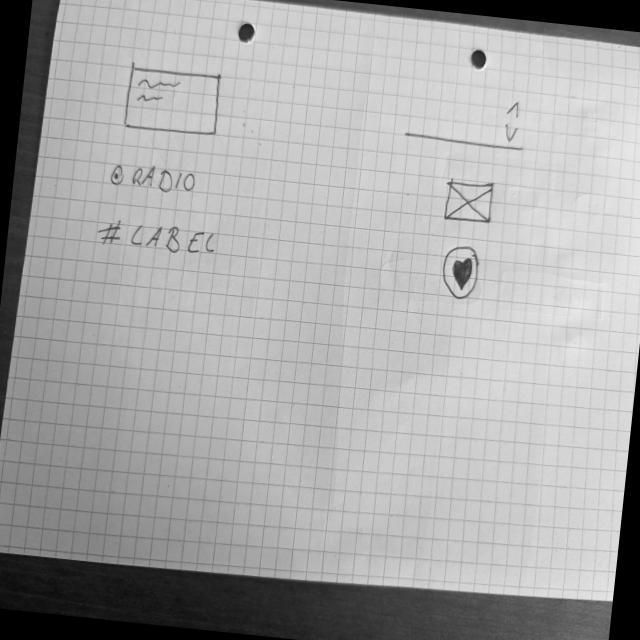 RADIO
# LABEL